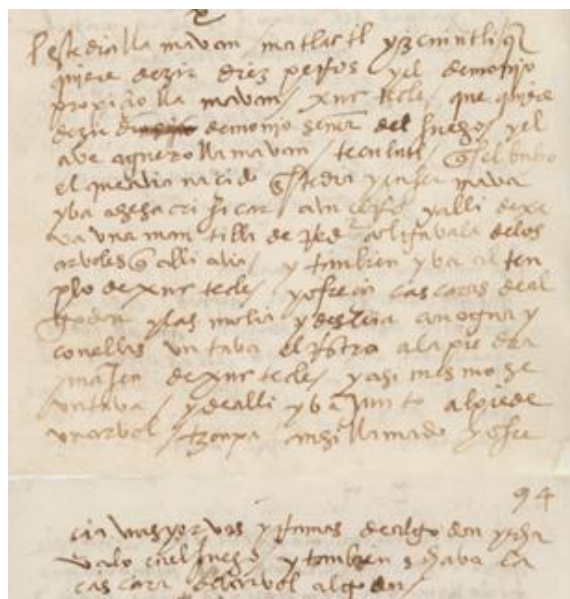 este dia llamavan matlactl yzcuintli q̃
quiere dezir diez perros yel demonjo
propicio llamavan / xuc tecle / que quiere
dezir demonjo señor del fuego / yel
ave aguero llamavan tecolutl q̃s el buho
el que avia nacido este dia y enfermava
yva a sacrificar a un y alli dexa
va una mantilla de red colgavala delos
arboles q̃ alli avia / y tambien yva al ten
plo de xuc tecle / y ofrecia cascaras de al
godon y las molia y desleia con ogua y
conellas untava el rostro a la piedra
ymajen de xuc tecle / y asi mesmo se
untava / y de alli yva junto al pie de
un arvol / tzonpa ansi llamado y ofre
94
cia unas yervas y ramas de algodon y echa
valo enel fuego y tambien echava la
cascara del arvol algodon /